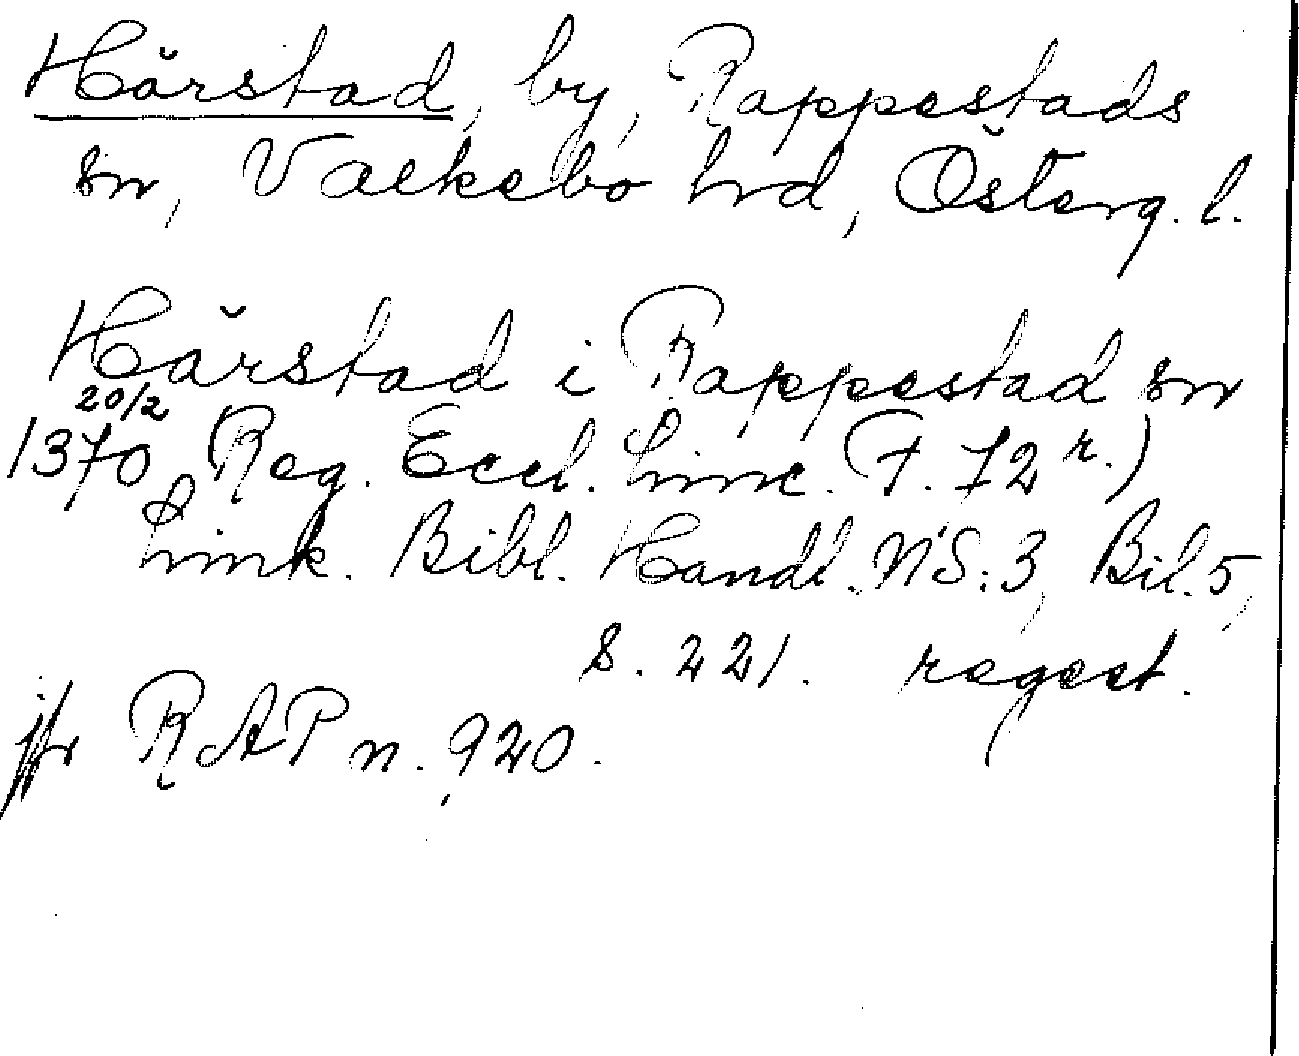 Hårstad, by, Rappestads
sn, Valkebo hrd, Österg. l.
Hårstad i Rappestad sn
20/2
1370 Reg. Eccl. Linc. (F. 72 r.)
Link. Bibl. Handl. NS:3, Bil. 5,
s. 221. regest.
jfr RAP n. 920.